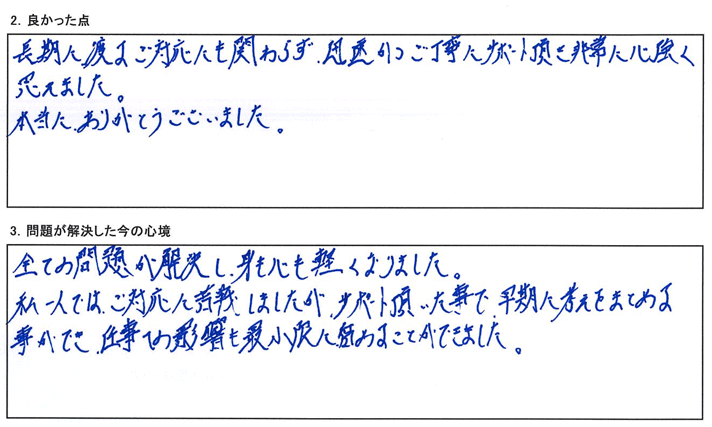 2. 良かった点
長期に渡るご対応にも関わらず、迅速かつご丁寧にサポート頂き非常に心強く
思えました。
本当に、ありがとうございました。
3. 問題が解決した今の心境
全ての問題が解決し、身も心も軽くなりました。
私一人では、ご対応に苦戦しましたが、サポート頂いた事で、早期に考えをまとめる
事ができ、仕事への影響も最小限に留めることができました。